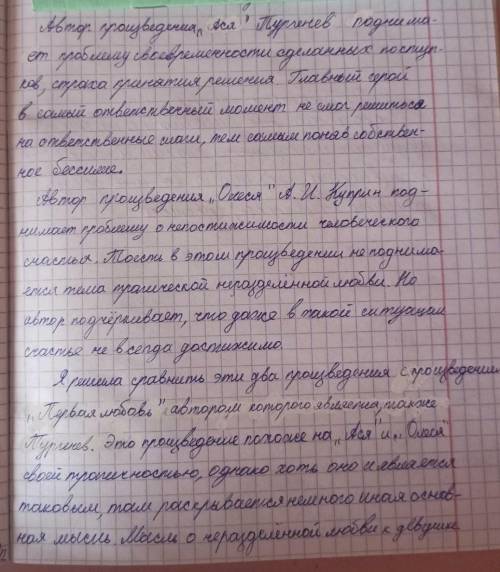 Автор произведения „Ася" Тургенев поднима-
ет проблему своевременности сделанных поступ-
ков, страха принятия решения. Главный герой
в самый ответственный момент не смог решиться
на ответственные шаги, тем самым поняв собствен-
ное бессилие.
Автор произведения „Олеся" А. И. Куприн под-
нимает проблему о непостижимости человеческого
счастья. Тоесть в этом произведении не поднима-
ется тема трагической неразделённой любви. Но
автор подчёркивает, что даже в такой ситуации
счастье не всегда достижимо.
Я решила сравнить эти два произведения с произведением
„Первая любовь" автором которого является также
Тургенев. Это произведение похоже на „Ася" и „Олеся"
своей трагичностью, однако хоть оно и является
таковым, там раскрывается немного иная основ-
ная мысль. Мысль о неразделённой любви к девушке